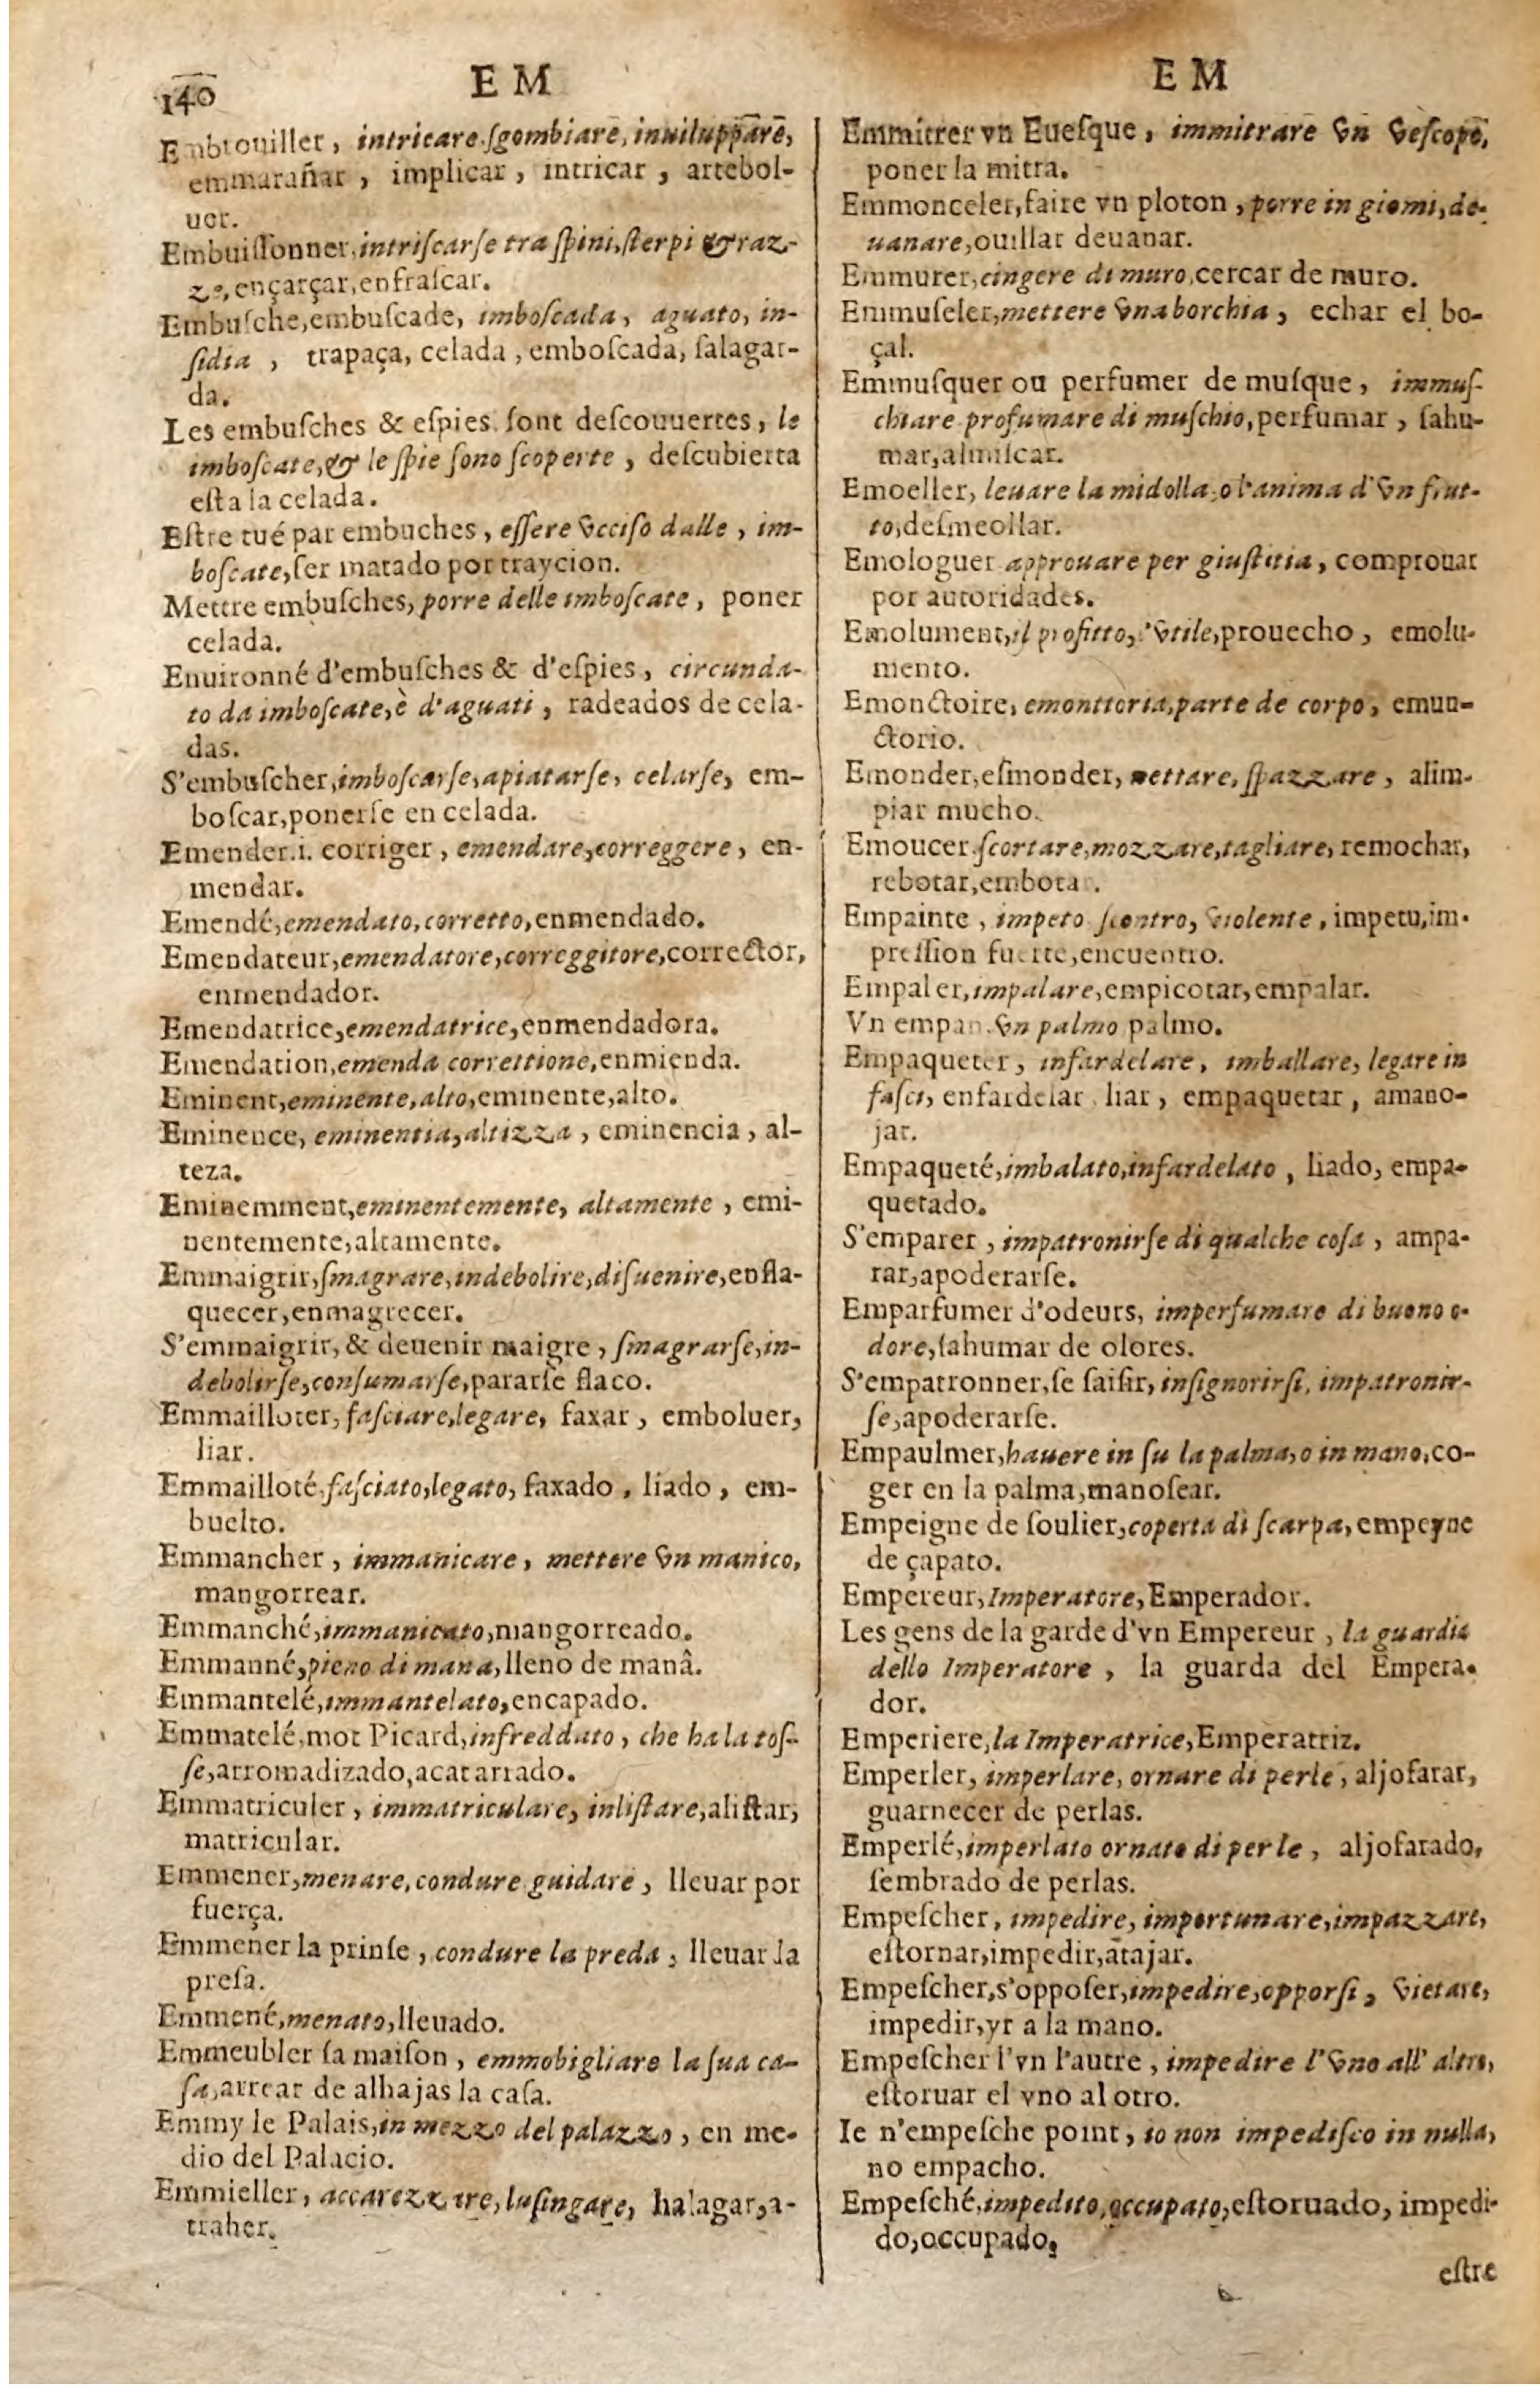 140
E M
Embrouiller, intricare, ſgombiare, inuiluppare,
emmarañar, implicar, intricar, artebol-
uer.
Embuiſſonner, intriſcarſe tra ſpini, ſterpi & raz-
ze, ençarçar, enfraſcar.
Embuſche, embuſcade, imboſcada, aguato, in-
ſidia, trapaça, celada, emboſcada, ſalagar-
da.
Les embuſches & eſpies ſont deſcouuertes, le
imboſcate, & le ſpie ſono ſcoperte, deſcubierta
eſta la celada.
Eſtre tué par embuches, eſſere vcciſo dalle, im-
boſcate, ſer matado por traycion.
Mettre embuſches, porre delle imboſcate, poner
celada.
Enuironné d'embuſches & d'eſpies, circunda-
to da imboſcate, è d'aguati, radeados de cela-
das.
S'embuſcher, imboſcarſe, apiatarſe, celarſe, em-
boſcar, ponerſe en celada.
Emender.i. corriger, emendare, correggere, en-
mendar.
Emendé, emendato, corretto, enmendado.
Emendateur, emendatore, correggitore, corrector,
enmendador.
Emendatrice, emendatrice, enmendadora.
Emendation, emenda correttione, enmienda.
Eminent, eminente, alto, eminente, alto.
Eminence, eminentia, altizza, eminencia, al-
teza.
Eminemment, eminentemente, altamente, emi-
nentemente, altamente.
Emmaigrir, ſmagrare, indebolire, diſuenire, enfla-
quecer, enmagrecer.
S'emmaigrir, & deuenir maigre, ſmagrarſe, in-
debolirſe, conſumarſe, pararſe flaco.
Emmailloter, faſciare, legare, faxar, emboluer,
liar.
Emmailloté, faſciato, legato, faxado, liado, em-
buelto.
Emmancher, immanicare, mettere vn manico,
mangorrear.
Emmanché, immanicato, mangorreado.
Emmanné, pieno di mana, lleno de manâ.
Emmantelé, immantelato, encapado.
Emmatelé, mot Picard, infreddato, che ha la toſ-
ſe, arromadizado, acatarrado.
Emmatriculer, immatriculare, inliſtare, aliſtar,
matricular.
Emmener, menare, condure guidare, lleuar por
fuerça.
Emmener la prinſe, condure la preda, lleuar la
preſa.
Emmené, menato, lleuado.
Emmeubler ſa maiſon, emmobigliare la ſua ca-
ſa, arrear de alhajas la caſa.
Emmy le Palais, in mezzo del palazzo, en me-
dio del Palacio.
Emmieller, accarezzare, luſingare, halagar, a-
traher.
E M
Emmitrer vn Eueſque, immitrare vn veſcopo,
poner la mitra.
Emmonceler, faire vn ploton, porre in giomi, de-
uanare, ouillar deuanar.
Emmurer, cingere di muro, cercar de muro.
Emmuſeler, mettere vna borchia, echar el bo-
çal.
Emmuſquer ou perfumer de muſque, immuſ-
chiare profumare di muſchio, perfumar, ſahu-
mar, almiſcar.
Emoeller, leuare la midolla, o l'anima d'vn frut-
to, deſmeollar.
Emologuer approuare per giuſtitia, comprouar
por autoridades.
Emolument, il profitto, l'vtile, prouecho, emolu-
mento.
Emonctoire, emonttoria, parte de corpo, emun-
ctorio.
Emonder, eſmonder, nettare, ſpazzare, alim-
piar mucho.
Emoucer ſcortare, mozzare, tagliare, remochar,
rebotar, embotar.
Empainte, impeto ſcontro, violente, impetu, im-
preſſion fuerte, encuentro.
Empaler, impalare, empicotar, empalar.
Vn empan. vn palmo palmo.
Empaqueter, infardelare, imballare, legare in
faſci, enfardelar liar, empaquetar, amano-
jar.
Empaqueté, imbalato, infardelato, liado, empa-
quetado.
S'emparer, impatronirſe di qualche coſa, ampa-
rar, apoderarſe.
Emparfumer d'odeurs, imperfumare di buono o-
dore, ſahumar de olores.
S'empatronner, ſe ſaiſir, inſignorirſi, impatronir-
ſe, apoderarſe.
Empaulmer, hauere in ſu la palma, o in mano, co-
ger en la palma, manoſear.
Empeigne de ſoulier, coperta di ſcarpa, empeyne
de çapato.
Empereur, Imperatore, Emperador.
Les gens de la garde d'vn Empereur, la guardia
dello Imperatore, la guarda del Empera-
dor.
Emperiere, la Imperatrice, Emperatriz.
Emperler, imperlare, ornare di perle, aljofarar,
guarnecer de perlas.
Emperlé, imperlato ornato di perle, aljofarado,
ſembrado de perlas.
Empeſcher, impedire, importunare, impazzare,
eſtornar, impedir, atajar.
Empeſcher, s'oppoſer, impedire, opporſi, vietare,
impedir, yr a la mano.
Empeſcher l'vn l'autre, impedire l'vno all' altro,
eſtoruar el vno al otro.
Ie n'empeſche point, io non impediſco in nulla,
no empacho.
Empeſché, impedito, occupato, eſtoruado, impedi-
do, occupado.
eſtre